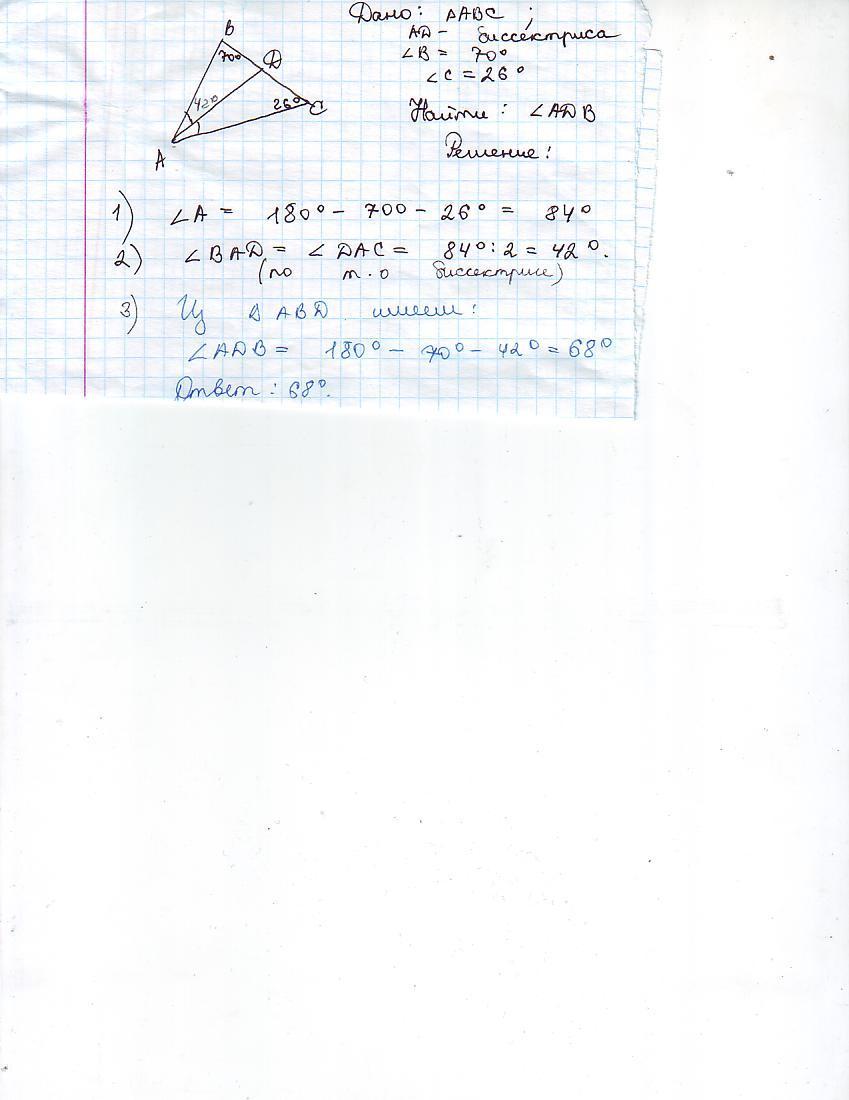 Дано: ΔABC ;
AD - биссектриса
∠B = 70°
∠C = 26°
Найти: ∠ADB
Решение:
B
70°
D
42°
26°
C
A
1) ∠A = 180° - 70° - 26° = 84°
2) ∠BAD = ∠DAC = 84° : 2 = 42°.
(по т. о биссектрисе)
3) Из Δ ABD имеем:
∠ADB = 180° - 70° - 42° = 68°
Ответ: 68°.